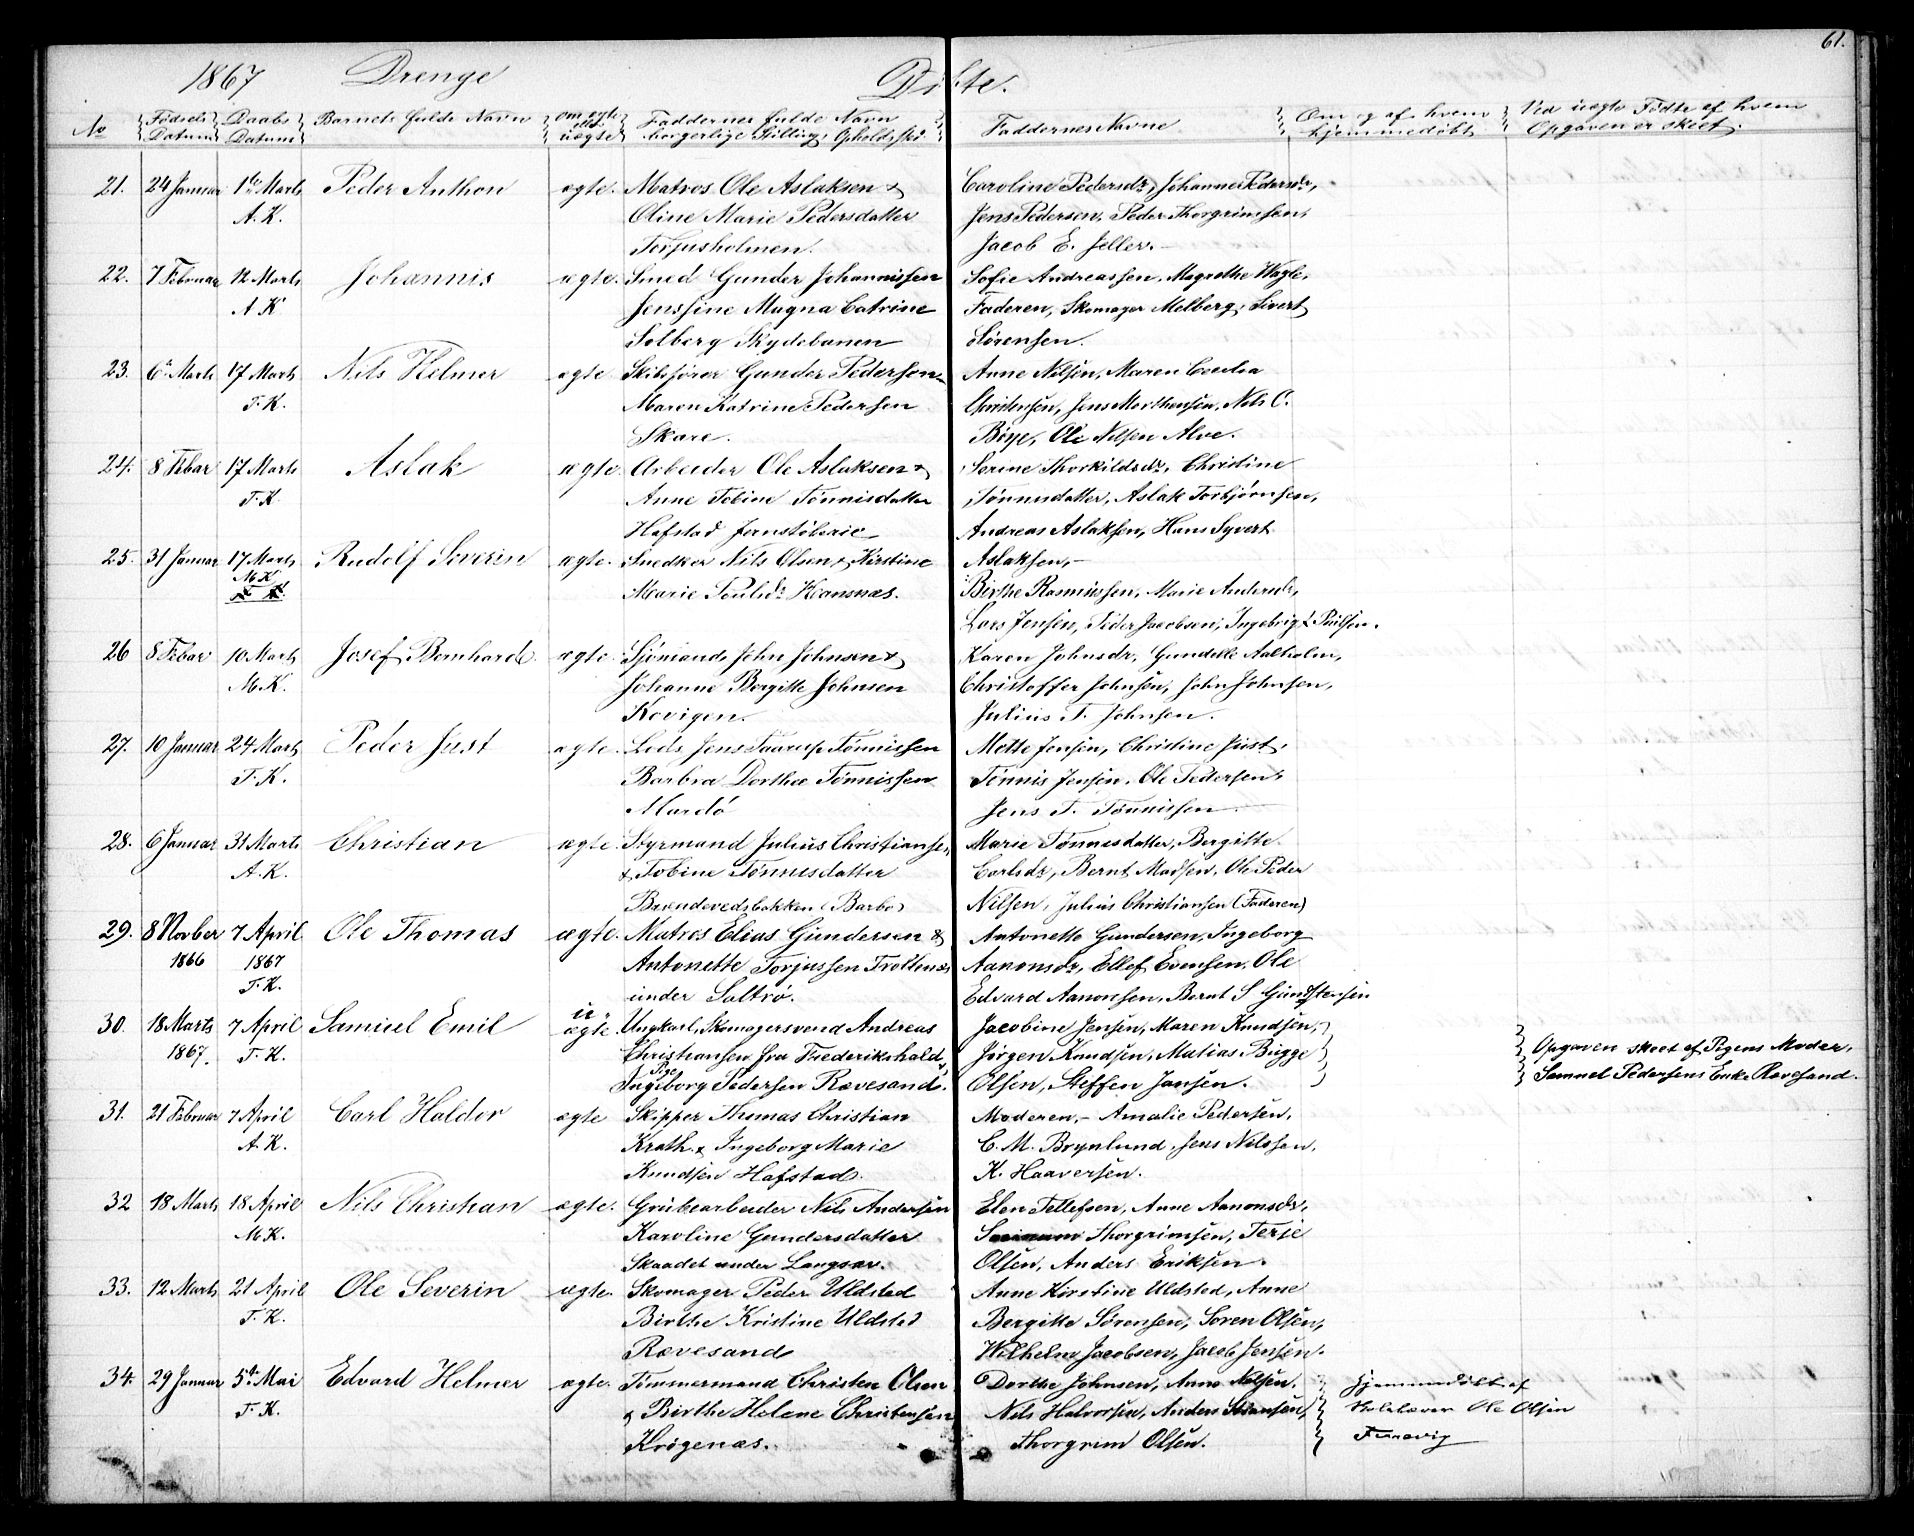 61.
1867 Drenge Døbte.
No Fødsels Datum Daabs Datum Barnets fulde Navn om ægte eller uægte Faddernes fulde Navn borgerlige Stilling, Opholdssted Faddernes Navne Om og af hvem hjemmedøbt Ved uægte Fødte af hvem Opgaven er skeet.
21. 24 Januar 1ste Marts Peder Anthon ægte. Matros Ole Aslaksen & Caroline Pedersdr, Johanne Pedersdr,
A. K. Oline Marie Pedersdatter Jens Pedersen, Peder Thorgrimsen,
Terjusholmen. Jacob E. Jeller.
22. 7 Februar 12 Marts Johannis ægte. Smed Gunder Johannissen Sofie Andreassen, Magrethe Wagle,
A. K Jenssine Magna Catrine Faderen, Skomager Melberg, Sivert
Solberg Skydebanen Sørensen.
23. 6te Marts 17 Marts Nils Helmer ægte. Skibsfører Gunder Pedersen Anne Nilsen, Maren Cecilia
T. K. Maren Katrine Pedersen Christensen, Jens Morthensen, Nils C.
Skare. Bøye, Ole Nilsen Alve.
24. 8 Febar 17 Marts Aslak ægte. Arbeider Ole Aslaksen & Serine Thorkildsdr, Christine
T. K. Anne Tobine Tønnisdatter Tønnisdatter, Aslak Torbjørnsen,
Hafstad Jernstøberie Andreas Aslaksen, Hans Syvert
25. 31 Januar 17 Marts Rudolf Severin ægte. Snedker Nils Olsen & Kirstine Aslaksen,
M K Marie Poulsdr Kransnæs. Birthe Rasmussen, Marie Andersdr,
Lars Jensen, Peder Jacobsen, Ingebrigt Paulsen.
26 8 Febar 10 Marts Josef Bernhard ægte. Sjömand John Johnsen & Karen Johnsdr, Gundelle Aalholm,
M. K. Johanne Bergitte Johnsen Christoffer Johnsen, John Johnsen,
Kovigen. Julius T. Johnsen.
27. 10 Januar 24 Marts Peder Just ægte. Lods Jens Taarup Tønnissen Mette Jensen, Christine Just,
T. K. Barbra Dorthea Tønnissen Tønnis Jensen, Ole Pedersen,
Mardö Jens T. Tønnissen.
28. 6 Januar 31 Marts Christian ægte. Styrmand Julius Christiansen, Marie Tønnesdatter, Bergitte
A. K. & Tobine Tønnesdatter Carlsdr, Bernt Madsen, Ole Peder
Brændevedsbakken (Barbo) Nilsen, Julius Christiansen (Faderen)
29. 8 Novber 7 April Ole Thomas ægte. Matros Elias Gundersen & Antonette Gundersen, Ingeborg
1866 1867 Antonette Torjussen Trollnæs Aanonsdr, Ellef Evensen, Ole
T. K. under Saltrø. Edvard Aanonsen, Bernt S Gundstensen
30. 18 Marts 7 April Samuel Emil u. ægte. Ungkarl, Skomagersvend Andreas Jacobine Jensen, Maren Knudsen,
1867. T. K. Christiansen fra Frederikshald & Jørgen Knudsen, Matias Bugge Opgaven skeet af Pigens Moder,
Pige Ingeborg Pedersen Rævesand. Olsen, Steffen Jansen. Samuel Pedersens Enke Rævesand.
31. 21 Februar 7 April Carl Haldor ægte Skipper Thomas Christian Moderen, Amalie Pedersen,
A. K. Krath & Ingeborg Marie C. M. Brynlund, Jens Nilssen,
Knudsen Hafstad. K. Haaversen.
32 18 Marts 18 April Nils Christian ægte. Grubearbeider Nils Andersen Elen Tellefsen, Anne Aanonsdr,
M K. Karoline Gundersdatter Thorgrimsen, Terje
Skaadet under Langsæ. Olsen, Anders Eriksen.
33. 12 Marts 21 April Ole Severin ægte. Skomager Peder Uldsted Anne Kirstine Uldsted, Anne
T. K. Birthe Kristine Uldsted Bergitte Sørensen, Soren Olsen,
Rævesand Wilhelm Jacobsen, Jacob Jensen.
34. 29 Januar 5te Mai Edvard Helmer ægte. Tømmermand Christen Olsen Dorthe Johnsen, Anne Nilsen, hjemmedöbt af
T. K. & Birthe Helene Christensen Nils Halvorsen, Anders Ole Olsen
Krøgenæs. Thorgrim Olsen.